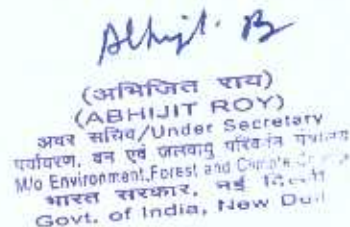 Abhijit. R
(अभिजित राय)
(ABHIJIT ROY)
अवर सचिव/Under Secretary
पर्यावरण, वन एवं जलवायु परिवर्तन मंत्रालय
M/o Environment, Forest and Climate
भारत सरकार, नई दिल्ली
Govt. of India, New Del